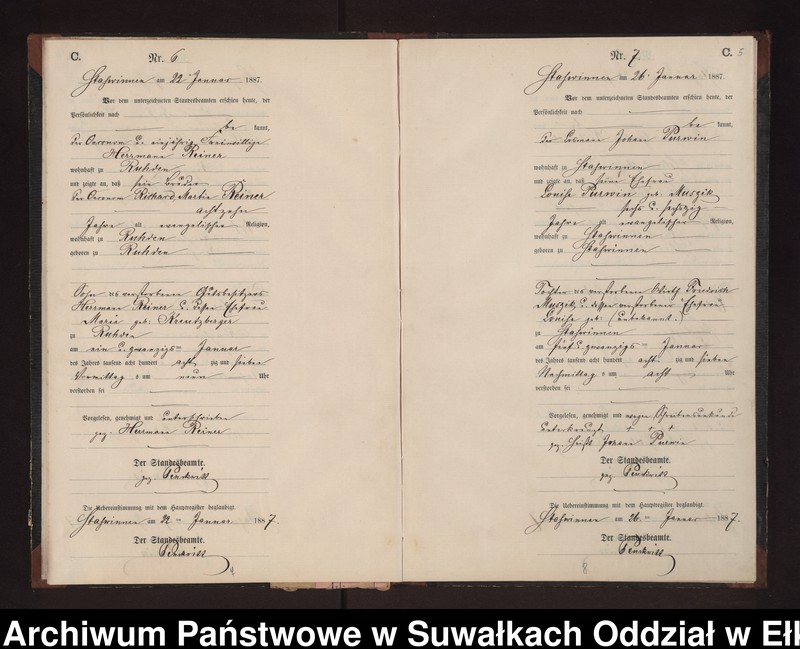 C.
Nr. 6
Staswinnen am 22. Januar 1887.
Vor dem unterzeichneten Standesbeamten erschien heute, der
Persönlichkeit nach
be kannt,
der Oeconom u. einjährig Freiwillige
Herrmann Reiner
wohnhaft zu Ruhden
und zeigte an, daß sein Bruder
der Oeconom Richard Martin Reiner
achtzehn
Jahre alt evangelischer Religion,
wohnhaft zu Ruhden
geboren zu Ruhden
Sohn des verstorbenen Gutsbesitzers
Herrmann Reiner u. dessen Ehefrau
Marie geb. Kreutzberger
zu Ruhden
am ein u. zwanzigsten Januar
des Jahres tausend acht hundert achtzig und sieben
Vormittag s um neun Uhr
verstorben sei
Vorgelesen, genehmigt und unterschrieben
gez. Herrmann Reiner
Der Standesbeamte.
gez.
Die Uebereinstimmung mit dem Hauptregister beglaubigt.
Staswinnen am 22ten Januar 1887.
Der Standesbeamte.
Nr. 7.
C. 5
Staswinnen am 26. Januar 1887.
Vor dem unterzeichneten Standesbeamten erschien heute, der
Persönlichkeit nach
be kannt,
der Losmann Johann Purwin
wohnhaft zu Staswinnen
und zeigte an, daß seine Ehefrau
Louise Purwin geb. Muszik
sechs u. sechszig
Jahre alt evangelischer Religion,
wohnhaft zu Staswinnen
geboren zu Staswinnen
Tochter des verstorbenen Wirth Friedrich
Muszik u. dessen verstorbener Ehefrau
Louise geb. (unbekannt)
zu Staswinnen
am fünf u. zwanzigsten Januar
des Jahres tausend acht hundert achtzig und sieben
Nachmittag s um acht Uhr
verstorben sei
Vorgelesen, genehmigt und wegen Schreibensunkunde
unterkreuzt + + +
gez. Johann Purwin
Der Standesbeamte.
gez.
Die Uebereinstimmung mit dem Hauptregister beglaubigt.
Staswinnen am 26ten Januar 1887.
Der Standesbeamte.
Archiwum Państwowe w Suwałkach Oddział w Ełk